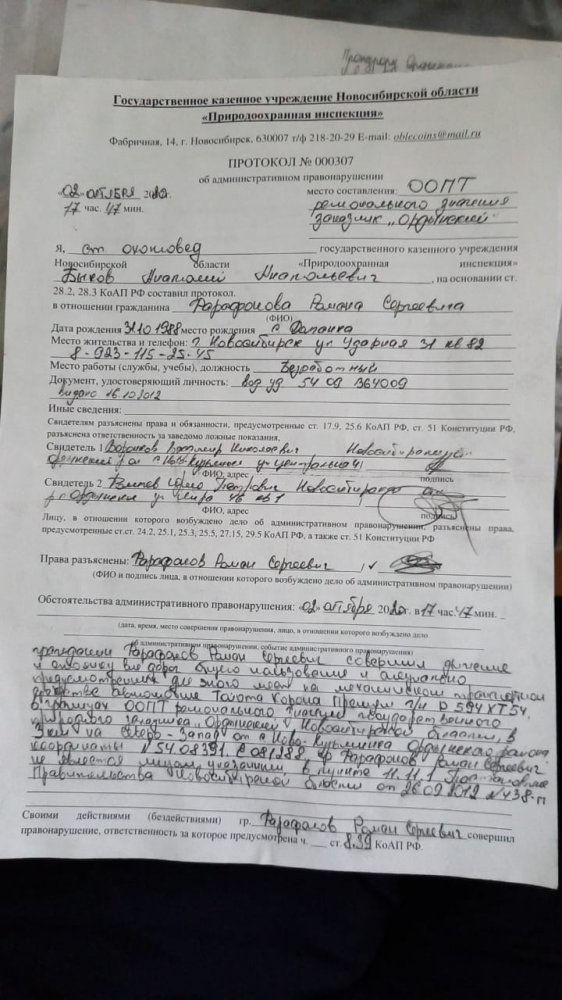 Государственное казенное учреждение Новосибирской области
«Природоохранная инспекция»
Фабричная, 14, г. Новосибирск, 630007 т/ф 218-20-29 E-mail: oblecoins@mail.ru
ПРОТОКОЛ № 000307
об административном правонарушении
«02» октября 2020г. место составления: ООПТ
17 час. 47 мин. регионального значения
заказник "Ордынский"
Я, ст. охотовед государственного казенного учреждения
Новосибирской области «Природоохранная инспекция»
Быков Анатолий Анатольевич, на основании ст.
28.2, 28.3 КоАП РФ составил протокол.
в отношении гражданина Фарафонова Романа Сергеевича
(ФИО)
Дата рождения 31.10.1988 место рождения с
Место жительства и телефон: г. Новосибирск ул Ударная 31 кв 82
8-923-115-25-45
Место работы (службы, учебы), должность Безработный
Документ, удостоверяющий личность: вод уд 54 09 364009
выдано 16.10.2012
Иные сведения:
Свидетелям разъяснены права и обязанности, предусмотренные ст. 17.9, 25.6 КоАП РФ, ст. 51 Конституции РФ,
разъяснена ответственность за заведомо ложные показания.
Свидетель 1 Николаевич
Ордынский р-он ул Центральная 41
ФИО, адрес подпись
Свидетель 2
46 кв 1
ФИО, адрес подпись
Лицу, в отношении которого возбуждено дело об административном правонарушении, разъяснены права,
предусмотренные ст.ст. 24.2, 25.1, 25.3, 25.5, 27.15, 29.5 КоАП РФ, а также ст. 51 Конституции РФ
Права разъяснены: Фарафонов Роман Сергеевич
(ФИО и подпись лица, в отношении которого возбуждено дело об административном правонарушении)
Обстоятельства административного правонарушения: «02» октября 2020г. в 17 час. 47 мин.
(дата, время, место совершения правонарушения, лицо, в отношении которого возбуждено дело
об административном правонарушении, событие административного правонарушения)
гражданин Фарафонов Роман Сергеевич совершил движение
и стоянку вне дорог общего пользования и специально
предусмотренных для этого мест на механическом транспортном
средстве автомобиле Тойота Корона Премио г/н О 594 КТ 54,
в границах ООПТ регионального значения государственного
природного заказника "Ордынский" Новосибирской области, в
3км на Северо-Запад от с Ново-Кузьминка Ордынского района
координаты N 54.08391. E 081288, гр Фарафонов Роман Сергеевич
не является лицом указанным в пункте 11.11.1 Постановления
Правительства Новосибирской области от 26.09.2012 № 438-п
Своими действиями (бездействиями) гр. Фарафонов Роман Сергеевич совершил
правонарушение, ответственность за которое предусмотрена ч. ст. 8.39 КоАП РФ.